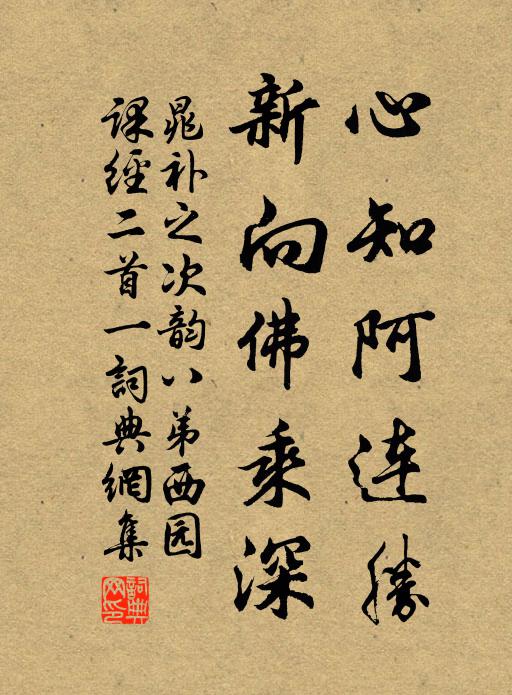 心知阿连勝
新向佛乘深
晁补之次韵八弟西园
课經二首一詞典網集
詞典
网印